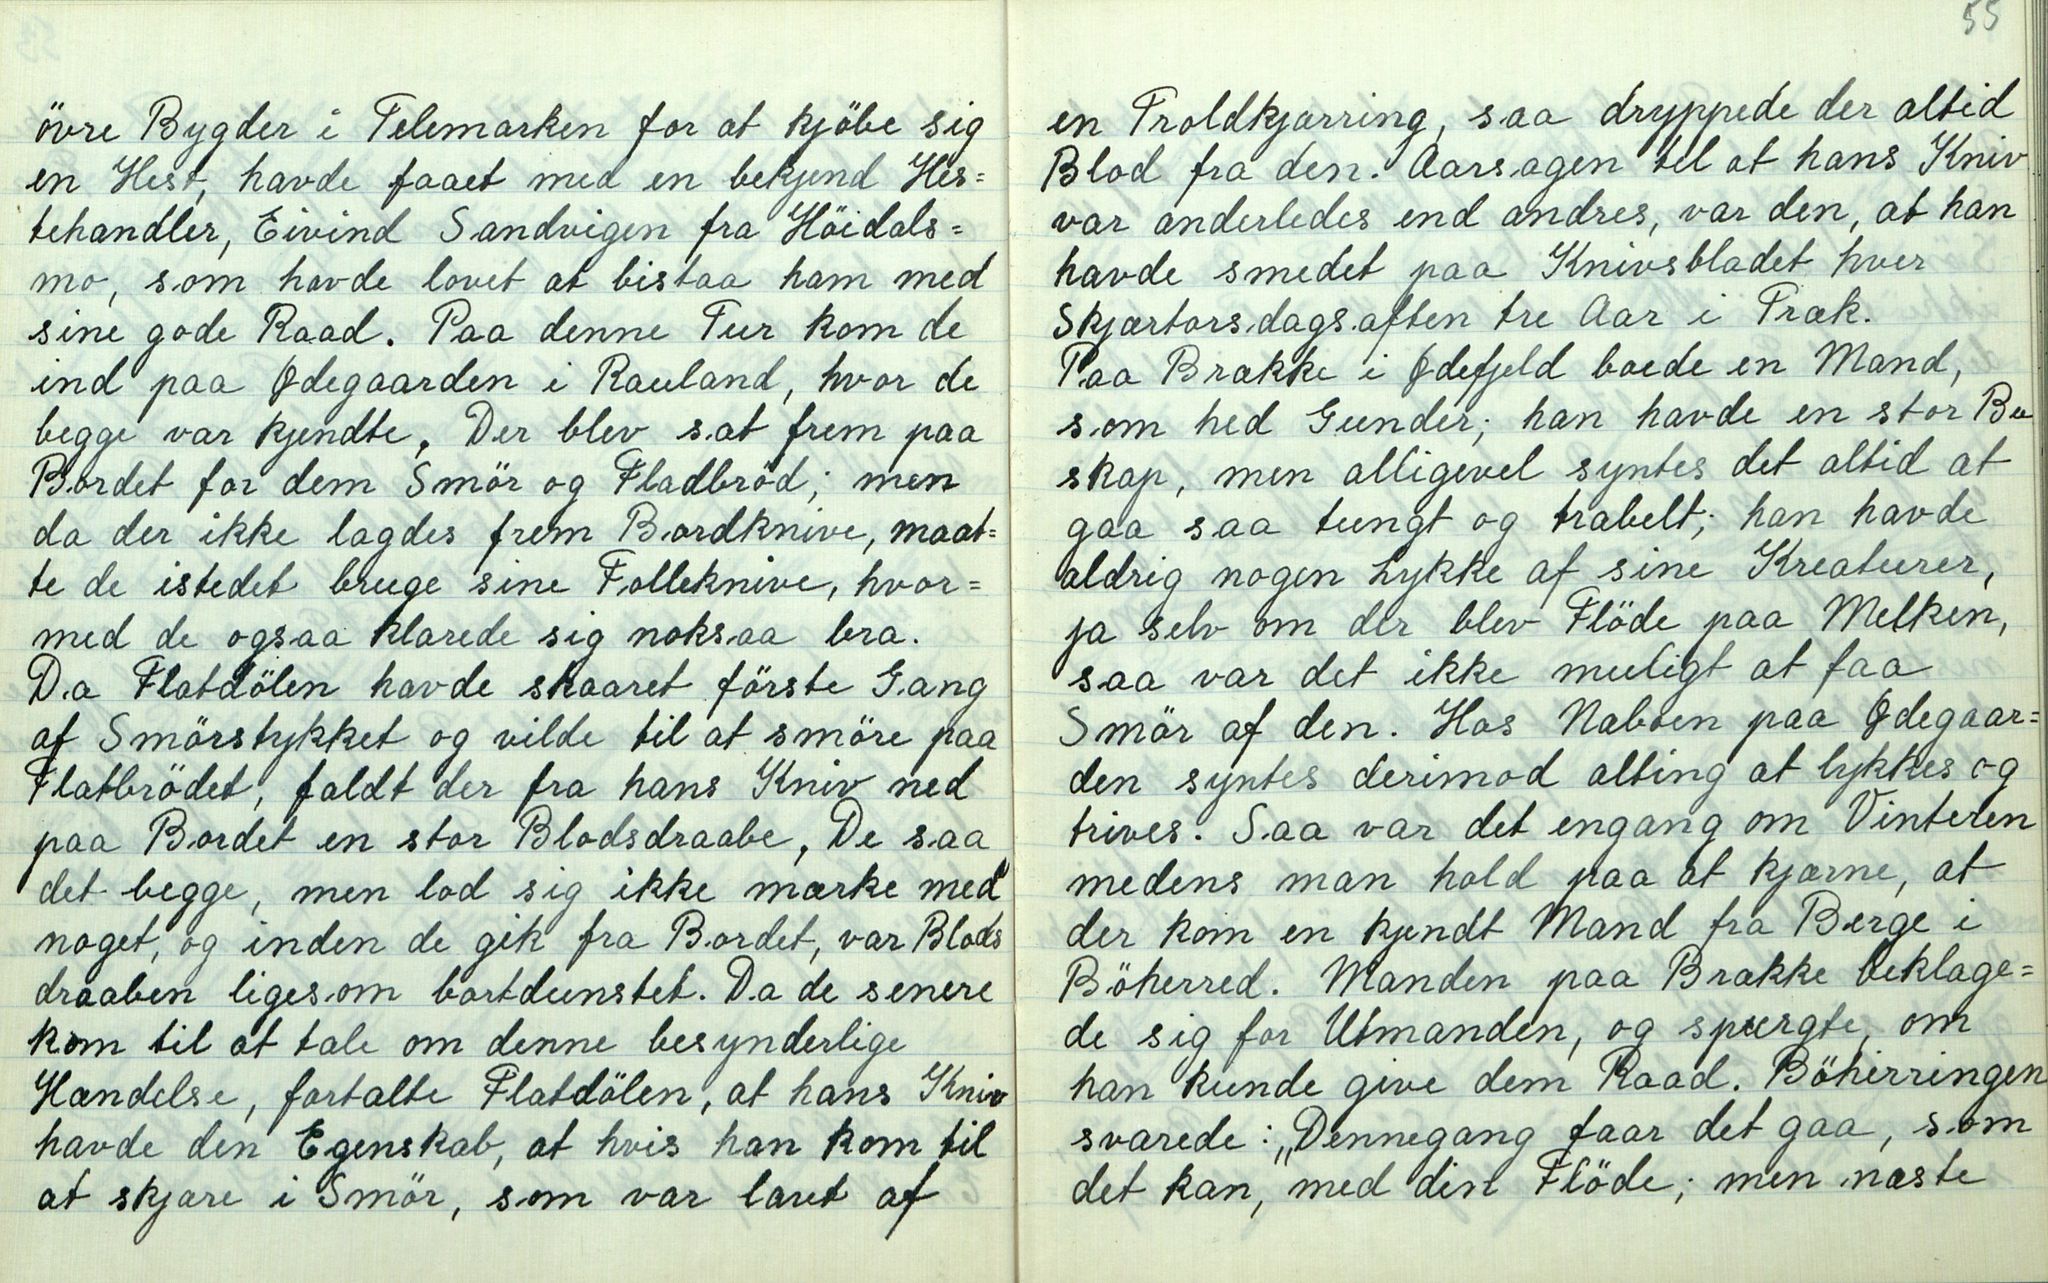 övre Bygder i Telemarken for at kjöbe sig
en Hest, havde faaet med en bekjend Hes=
tehandler, Eivind Sandvigen fra Höidals=
mo, som havde lovet at bistaa ham med
sine gode Raad. Paa denne Tur kom de
ind paa Ødegaarden i Rauland, hvor de
begge var kjendte. Der blev sat frem paa
Bordet for dem Smör og Fladbröd; men
da der ikke lagdes frem Bordknive, maat=
te de istedet bruge sine Folleknive, hvor=
med de ogsaa klarede sig noksaa bra.
Da Flatdölen havde skaaret förste Gang
af Smörstykket og vilde til at smöre paa
Flatbrödet, faldt der fra hans Kniv ned
paa Bordet en stor Blodsdraabe, De saa
det begge, men lod sig ikke mærke med
noget, og inden de gik fra Bordet, var Blods
draaben ligesom bortdunstet. Da de senere
kom til at tale om denne besynderlige
Hændelse, fortalte Flatdölen, at hans Kniv
havde den Egenskab, at hvis han kom til
at skjære i Smör, som var laret af
55
en Troldkjærring, saa dryppede der altid
Blod fra den. Aarsagen til at hans Kniv
var anderledes end andres, var den, at han
havde smedet paa Knivsbladet hver
Skjærtorsdagsaften tre Aar i Træk.
Paa Brække i Ødefjeld boede en Mand,
som hed Gunder; han havde en stor Bu
skap, men alligevel syntes det altid at
gaa saa tungt og trabelt; han havde
aldrig nogen Lykke af sine Kreaturer,
ja selv om der blev Flöde paa Melken,
saa var det ikke muligt at faa
Smör af den. Hos Naboen paa Ødegaar=
den syntes derimod alting at lykkes og
trives. Saa var det engang om Vinteren
medens man hold paa at kjærne, at
der kom en kjendt Mand fra Berge i
Böherred. Manden paa Brække beklage=
de sig for Utmanden, og spurgte, om
han kunde give dem Raad. Böherringen
svarede: „Dennegang faar det gaa, som
det kan, med din Flöde; men næste